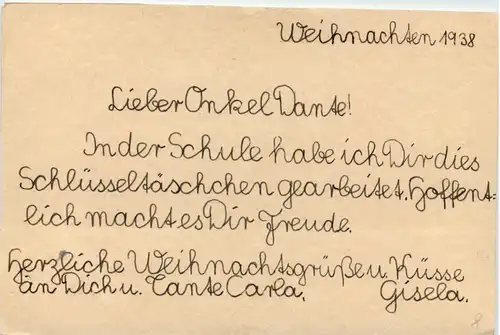 Weihnachten 1938
Lieber Onkel Dante!
In der Schule habe ich Dir dies
Schlüsseltäschchen gearbeitet. Hoffent-
lich macht es Dir Freude.
Herzliche Weihnachtsgrüße u. Küsse
an Dich u. Tante Carla. Gisela.